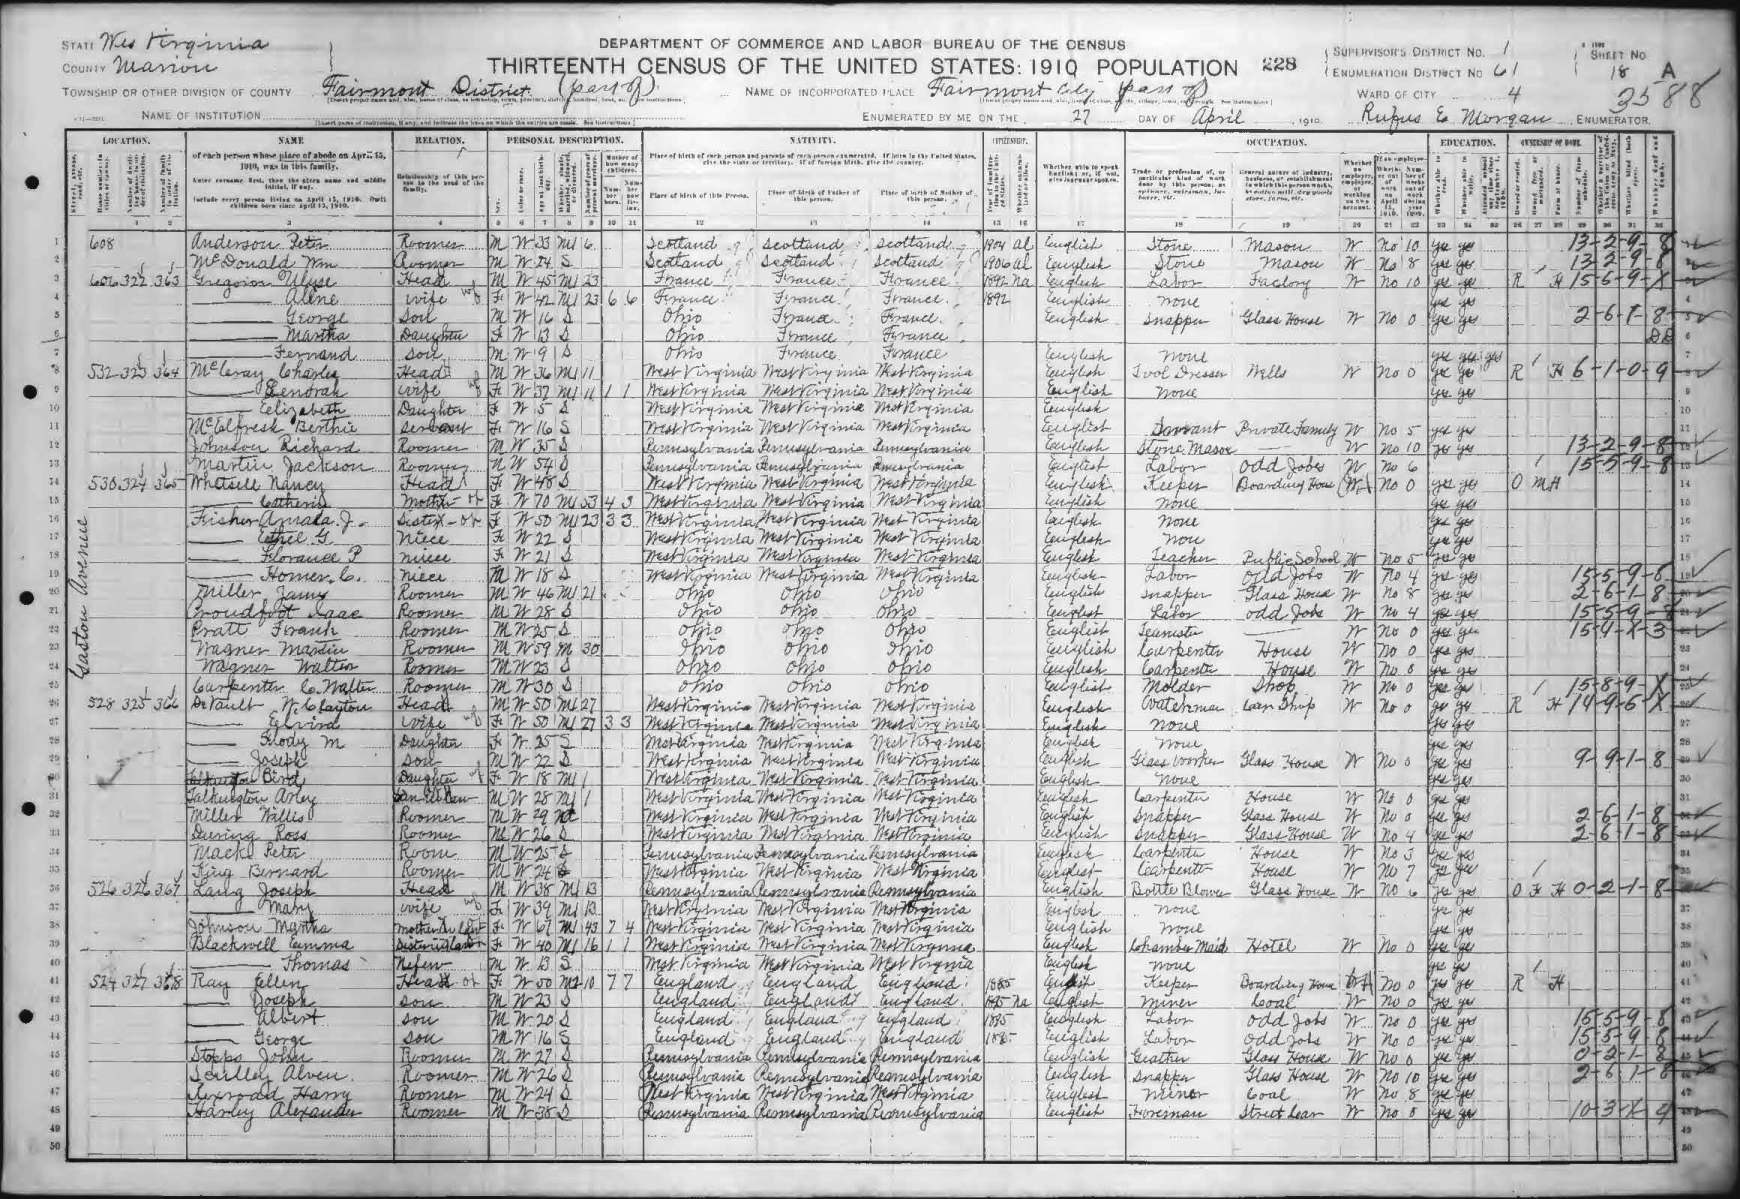 DEPARTMENT OF COMMERCE AND LABOR BUREAU OF THE CENSUS
THIRTEENTH CENSUS OF THE UNITED STATES: 1910 POPULATION
228
STATE Wes Virginia
COUNTY Marion
TOWNSHIP OR OTHER DIVISION OF COUNTY Fairmont District (part of)
NAME OF INCORPORATED PLACE Fairmont City (part of)
NAME OF INSTITUTION
ENUMERATED BY ME ON THE 27 DAY OF April, 1910.
Rufus E Morgan ENUMERATOR.
SUPERVISOR'S DISTRICT NO. 1
ENUMERATION DISTRICT NO 61
WARD OF CITY 4
SHEET NO 18 A
3588
LOCATION. NAME RELATION. PERSONAL DESCRIPTION. NATIVITY. CITIZENSHIP. OCCUPATION. EDUCATION. OWNERSHIP OF HOME.
of each person whose place of abode on April 15, 1910, was in this family.
Place of birth of this Person. Place of birth of Father of this person. Place of birth of Mother of this person.
Gaston Avenue
1 608 Anderson Peter Roomer M W 33 M1 6 Scotland Scotland Scotland 1904 al English Stone Mason W No 10 yes yes 13-2-9-8
2 McDonald Wm Roomer M W 24 S Scotland Scotland Scotland 1906 al English Stone Mason W No 8 yes yes 13-2-9-8
3 606 322 363 Gregoire Head M W 45 M1 23 France France France 1892 na English Labor Factory W No 10 yes yes R H 15-6-9-X
4 Aline wife F W 42 M1 23 6 6 France France France 1892 English none yes yes
5 George son M W 16 S Ohio France France English Snapper Glass House W No 0 yes yes 2-6-1-8
6 Martha Daughter F W 13 S Ohio France France
7 Fernand son M W 9 S Ohio France France English none yes yes yes
8 532 323 364 McCray Charles Head M W 36 M1 11 West Virginia West Virginia West Virginia English Tool Dresser Wells W No 0 yes yes R H 6-1-0-9
9 Lenorah wife F W 37 M1 11 1 1 West Virginia West Virginia West Virginia English None yes yes
10 Elizabeth Daughter F W 5 S West Virginia West Virginia West Virginia English
11 McElfresh Berthie servant F W 16 S West Virginia West Virginia West Virginia English Servant Private Family W No 5 yes yes
12 Johnson Richard Roomer M W 35 S Pennsylvania Pennsylvania Pennsylvania English Stone Mason W No 10 yes yes 13-2-9-8
13 Martin Jackson Roomer M W 54 S Pennsylvania Pennsylvania Pennsylvania English Labor Odd Jobs W No 6 15-5-9-8
14 530 324 365 Nancy Head F W 48 S West Virginia West Virginia West Virginia English Keeper Boarding House No 0 yes yes O M H
15 Catherine Mother F W 70 M1 53 4 3 West Virginia West Virginia West Virginia English none yes yes
16 Fisher J. Sister F W 50 M1 23 3 3 West Virginia West Virginia West Virginia English none yes yes
17 Ethel G. niece F W 22 S West Virginia West Virginia West Virginia English none yes yes
18 Florance P niece F W 21 S West Virginia West Virginia West Virginia English Teacher Public School W No 5 yes yes
19 Homer C. niece M W 18 S West Virginia West Virginia West Virginia English Labor Odd Jobs W No 4 yes yes 15-5-9-8
20 Miller Roomer M W 46 M1 21 Ohio Ohio Ohio English Snapper Glass House W No 8 yes yes 2-6-1-8
21 Proudfoot Isaac Roomer M W 28 S Ohio Ohio Ohio English Labor Odd Jobs W No 4 yes yes 15-5-9-8
22 Pratt Frank Roomer M W 25 S Ohio Ohio Ohio English Teamster W No 0 yes yes 15-4-X-3
23 Wagner Martin Roomer M W 59 M 30 Ohio Ohio Ohio English Carpenter House W No 0 yes yes
24 Wagner Walter Roomer M W 23 S Ohio Ohio Ohio English Carpenter House W No 0 yes yes
25 Carpenter C. Walter Roomer M W 30 S Ohio Ohio Ohio English Molder Shop W No 0 yes yes 15-8-9-X
26 528 325 366 DeVault W Clayton Head M W 50 M1 27 West Virginia West Virginia West Virginia English Watchman Car Shop W No 0 yes yes R H 14-9-6-X
27 wife F W 50 M1 27 3 3 West Virginia West Virginia West Virginia English None yes yes
28 M Daughter F W 25 S West Virginia West Virginia West Virginia English none yes yes
29 Joseph son M W 22 S West Virginia West Virginia West Virginia English Glass Worker Glass House W No 0 yes yes 9-9-1-8
30 Bird Daughter F W 18 M1 1 West Virginia West Virginia West Virginia English None yes yes
31 Talkington Arley Son in law M W 28 M1 1 West Virginia West Virginia West Virginia English Carpenter House W No 0 yes yes
32 Miller Willis Roomer M W 29 West Virginia West Virginia West Virginia English Snapper Glass House W No 0 yes yes 2-6-1-8
33 Ross Roomer M W 26 S West Virginia West Virginia West Virginia English Snapper Glass House W No 4 yes yes 2-6-1-8
34 Mack Peter Room M W 25 S Pennsylvania Pennsylvania Pennsylvania English Carpenter House W No 3 yes yes
35 King Bernard Roomer M W 24 S West Virginia West Virginia West Virginia English Carpenter House W No 7 yes yes
36 526 326 367 Lang Joseph Head M W 38 M1 13 Pennsylvania Pennsylvania Pennsylvania English Bottle Blower Glass House W No 6 yes yes O F H 0-2-1-8
37 Mary wife F W 39 M1 13 West Virginia West Virginia West Virginia English none yes yes
38 Johnson Martha Mother in law F W 67 M1 43 7 4 West Virginia West Virginia West Virginia English none yes yes
39 Blackwell Emma Sister in law F W 40 M1 16 1 1 West Virginia West Virginia West Virginia English Chamber Maid Hotel W No 0 yes yes
40 Thomas Nefew M W 13 S West Virginia West Virginia West Virginia English none yes yes
41 524 327 368 Ray Ellen Head F W 50 10 7 7 England England England 1885 English Keeper Boarding House No 0 yes yes R H
42 Joseph son M W 23 S England England England 1885 na English Miner Coal W No 0 yes yes
43 Albert son M W 20 S England England England 1885 English Labor Odd Jobs W No 0 yes yes 15-5-9-8
44 George son M W 16 S England England England 1885 English Labor Odd Jobs W No 0 yes yes 15-5-9-8
45 Stopps John Roomer M W 27 S Pennsylvania Pennsylvania Pennsylvania English Gather Glass House W No 0 yes yes 0-2-1-8
46 Scully Alven Roomer M W 26 S Pennsylvania Pennsylvania Pennsylvania English Snapper Glass House W No 10 yes yes 2-6-1-8
47 Rexroad Harry Roomer M W 24 S West Virginia West Virginia West Virginia English Miner Coal W No 8 yes yes
48 Harley Alexander Roomer M W 38 S Pennsylvania Pennsylvania Pennsylvania English Foreman Street Car W No 0 yes yes 10-3-X-4
49
50